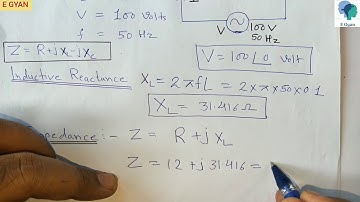 E GYAN
E Gyan
V = 100 volts
f = 50 Hz
100 V
50 Hz
Z = R+jXL-jXc
V = 100 L0 volt
Inductive Reactance XL = 2πfL = 2×π×50×0.1
XL = 31.416 Ω
:- Z = R + j XL
Z = 12 + j 31.416 =